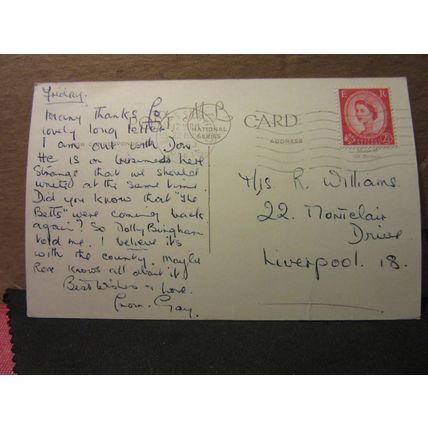 Friday.
Many thanks for
lovely long letter
I am out with Don
He is on business here
Strange that we should
write at the same time.
Did you know that "the
Betts" were coming back
again? So Dolly Bingham
told me. I believe it's
with the county. Maybe
Rose knows all about it
Best Wishes & Love.
from. Gay.
POST CARD
NATIONAL
SERIES
ADDRESS
E R
R. Williams
22. Montclair
Drive
Liverpool. 18.